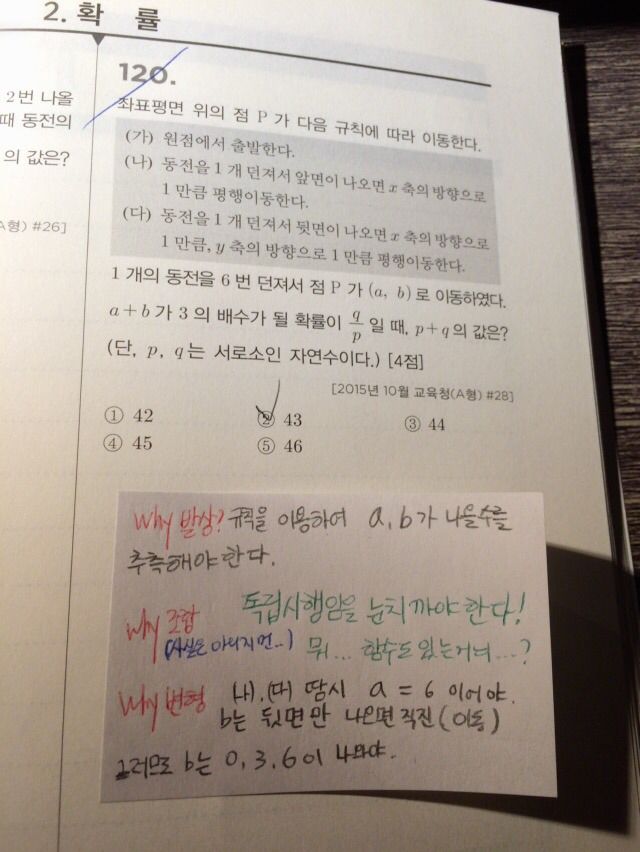 2. 확 률
2번 나올
때 동전의
의 값은?
A형) #26]
120.
좌표평면 위의 점 P가 다음 규칙에 따라 이동한다.
(가) 원점에서 출발한다.
(나) 동전을 1개 던져서 앞면이 나오면 x축의 방향으로
1만큼 평행이동한다.
(다) 동전을 1개 던져서 뒷면이 나오면 x축의 방향으로
1만큼, y축의 방향으로 1만큼 평행이동한다.
1개의 동전을 6번 던져서 점 P가 (a, b)로 이동하였다.
a+b가 3의 배수가 될 확률이 q/p일 때, p+q의 값은?
(단, p, q는 서로소인 자연수이다.) [4점]
[2015년 10월 교육청(A형) #28]
① 42 ② 43 ③ 44
④ 45 ⑤ 46
Why 발상? 규칙을 이용하여 a, b가 나올수를
추측해야한다.
Why 조합 독립시행임을 눈치까야한다!
뭐... 함수도 있는거너...?
Why 변형 (나), (다) 땜시 a = 6 이어야.
b는 뒷면만 나오면 직진(이동)
그러므로 b는 0, 3, 6이 나와야.